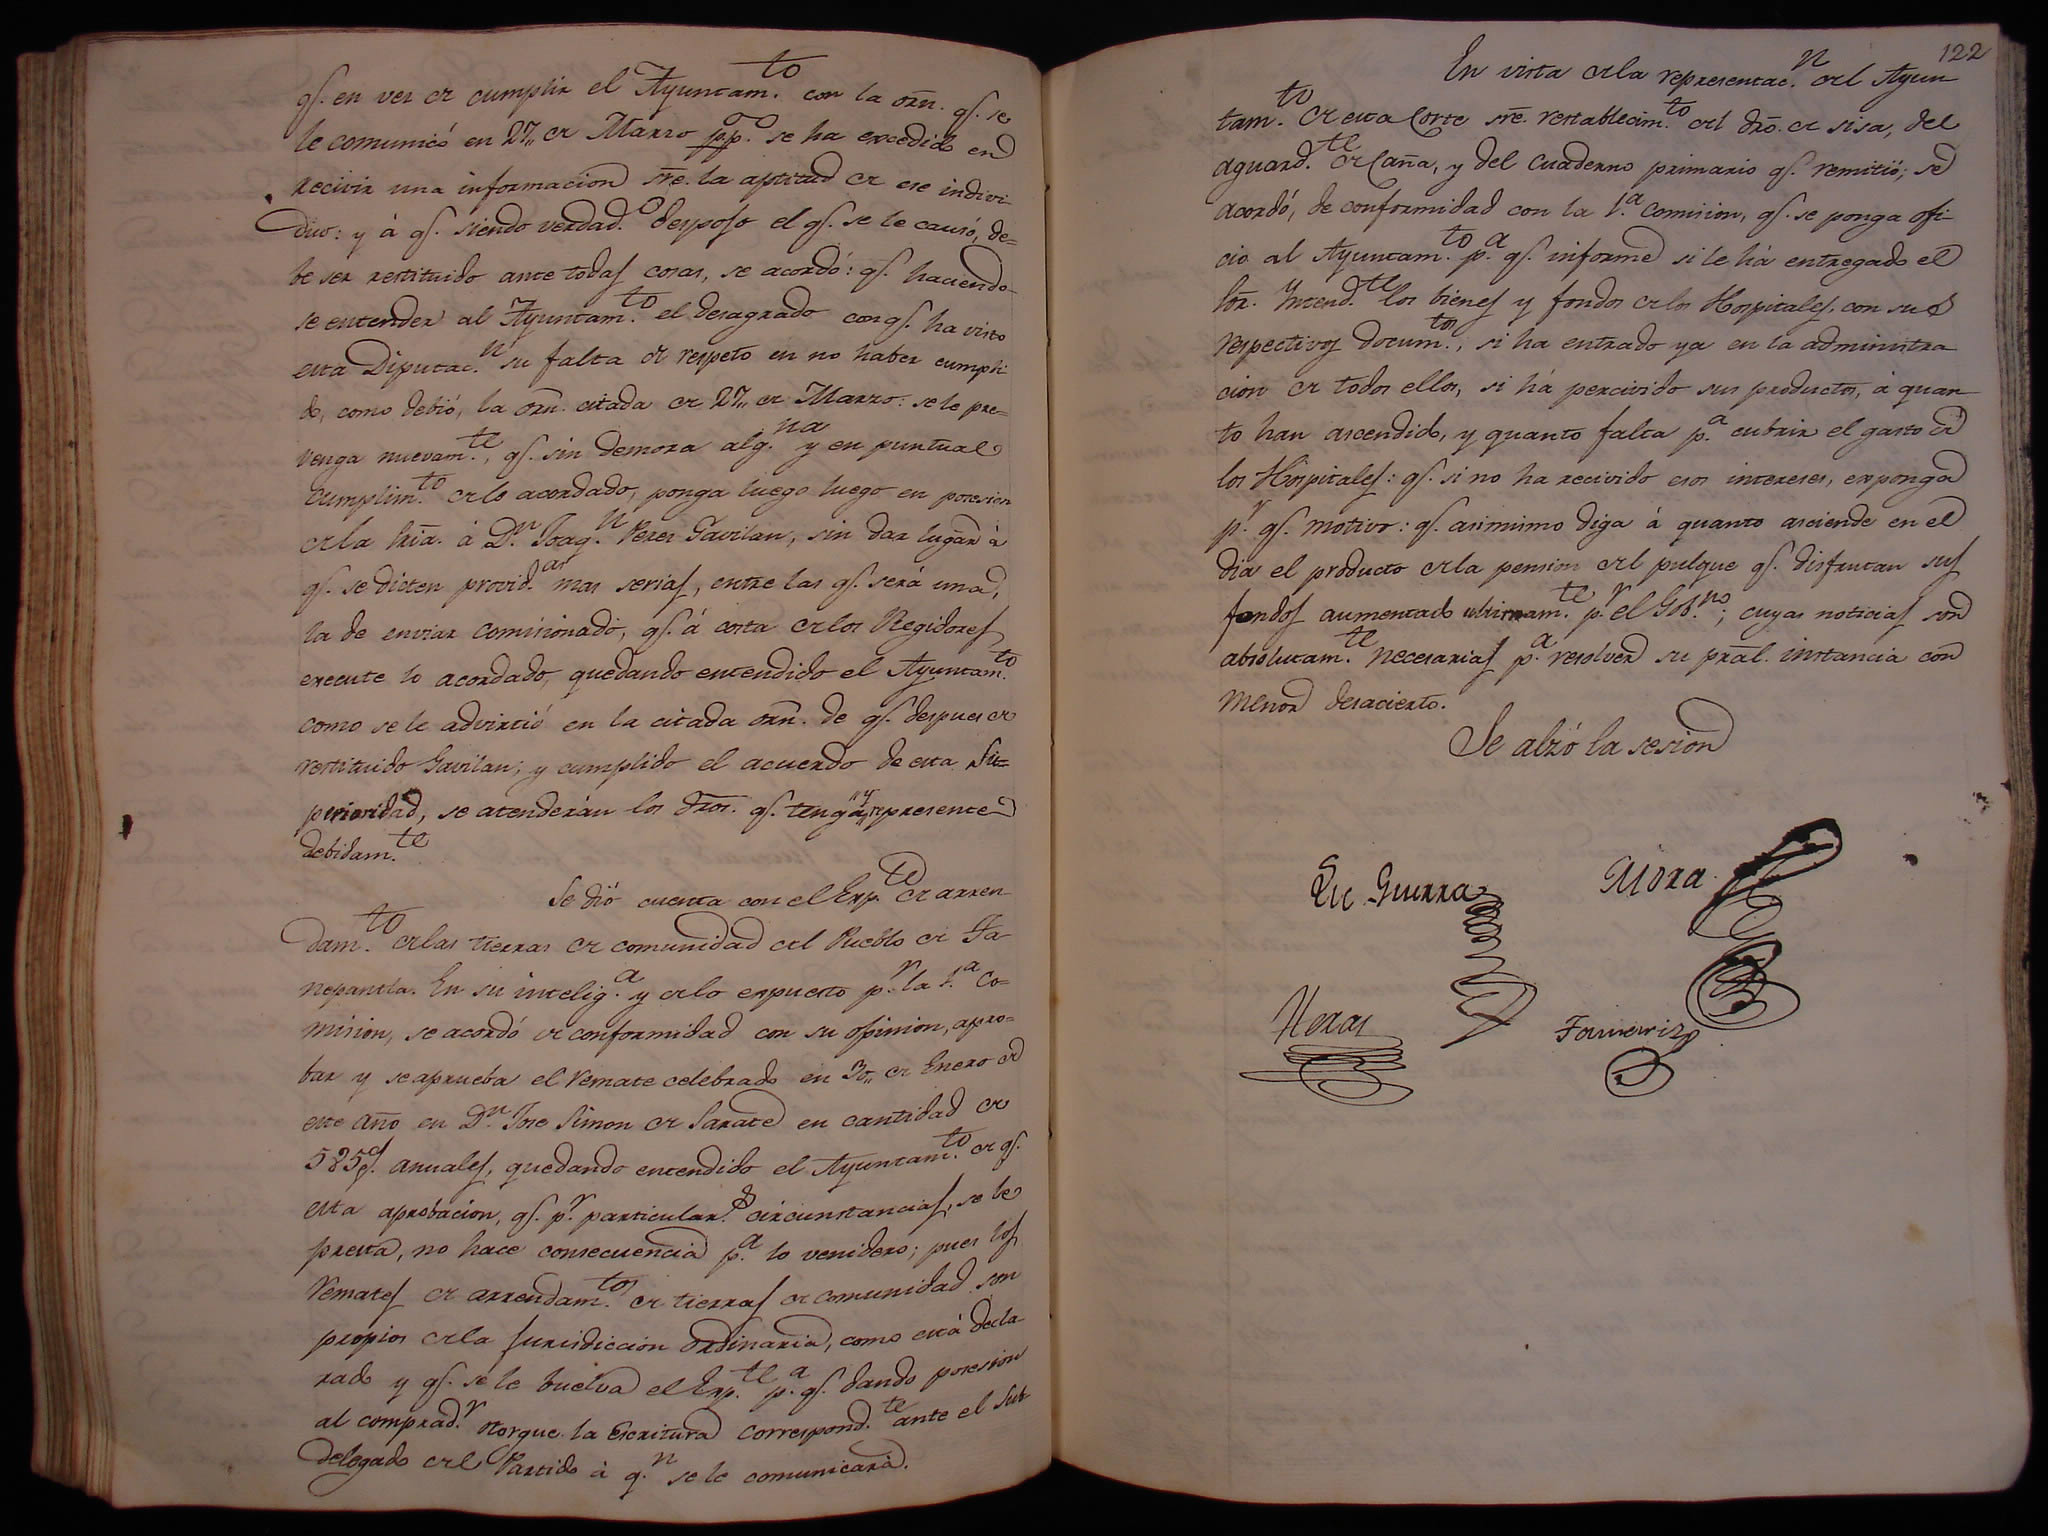 qē. en vez de cumplir el Ayuntam.to con la orn. qē. se
le comunicó en 27,, de Marzo pp.o se ha excedido en
recivir una informacion sre. la aptitud de ese indivi-
duo: y á qē. siendo verdad.o despojo el qē. se le causó, de=
be ser restituido ante todas cosas, se acordó: qē. haciendo-
se entender al Ayuntam.to el desagrado con qē. ha visto
esta Diputac.n su falta de respeto en no haber cumpli-
do, como debió, la orn. citada de 27,, de Marzo: se le pre=
venga nuevam.te, qē. sin demora alg.na y en puntual
cumplim.to de lo acordado, ponga luego luego en posesion
de la hria. á D.n Joaq.n Perez Gavilan, sin dar lugar á
qē. se dicten provid.as mas serias, entre las qē. será una,
la de enviar comisionado, qē. á costa de los Regidores
execute lo acordado, quedando entendido el Ayuntam.to
como se le advirtió en la citada orn. de qē. despues de
restituido Gavilan; y cumplido el acuerdo de esta Su=
perioridad, se atenderán los dros. qē. tenga,,y,,represente
debidam.te
Se dió cuenta con el Exp.te de arren
dam.to de las tierras de comunidad del Pueblo de Ja-
nepantla. En su intelig.a y de lo expuesto p.r la 1.a Co=
mision, se acordó de conformidad con su opinion, apro=
bar y se aprueba el remate celebrado en 30,, de Enero de
este año en D.n Jose Simon de Sarate en cantidad de
585 p.s anuales, quedando entendido el Ayuntam.to de qē.
esta aprobacion, qē. p.r particular.s circunstancias, se le
presta, no hace consecuencia p.a lo venidero; pues los
remates de arrendam.tos de tierras de comunidad son
propios de la Jurisdiccion ordinaria, como está decla
rado y qē. se le buelva el Exp.te p.a qē. dando posesion
al comprad.r otorgue la Escritura correspond.te ante el Sub
delegado del Partido á q.n se le comunicará.
122
En vista de la representac.n del Ayun
tam.to de esta Corte sre. restablecim.to del dro. de sisa, del
aguard.te de Caña, y del cuaderno primario qē. remitió; se
acordó, de conformidad con la 1.a comision, qē. se ponga ofi-
cio al Ayuntam.to p.a qē. informe si le há entregado el
Sor. Intend.te los bienes y fondos de los Hospitales, con sus
respectivos docum.tos, si ha entrado ya en la administra
cion de todos ellos, si há percivido sus productos, á quan
to han ascendido, y quanto falta p.a cubrir el gasto de
los Hospitales: qē. si no ha recivido esos intereses, exponga
p.r qē. motivo: qē. asimismo diga á quanto asciende en el
dia el producto de la pension del pulque qē. disfrutan sus
fondos aumentado ultimam.te p.r el Gob.no; cuyas noticias son
absolutam.te necesarias p.a resolver su pral. instancia con
menor desacierto.
Se alzó la sesion
Lic Guerra
Mora
Heras